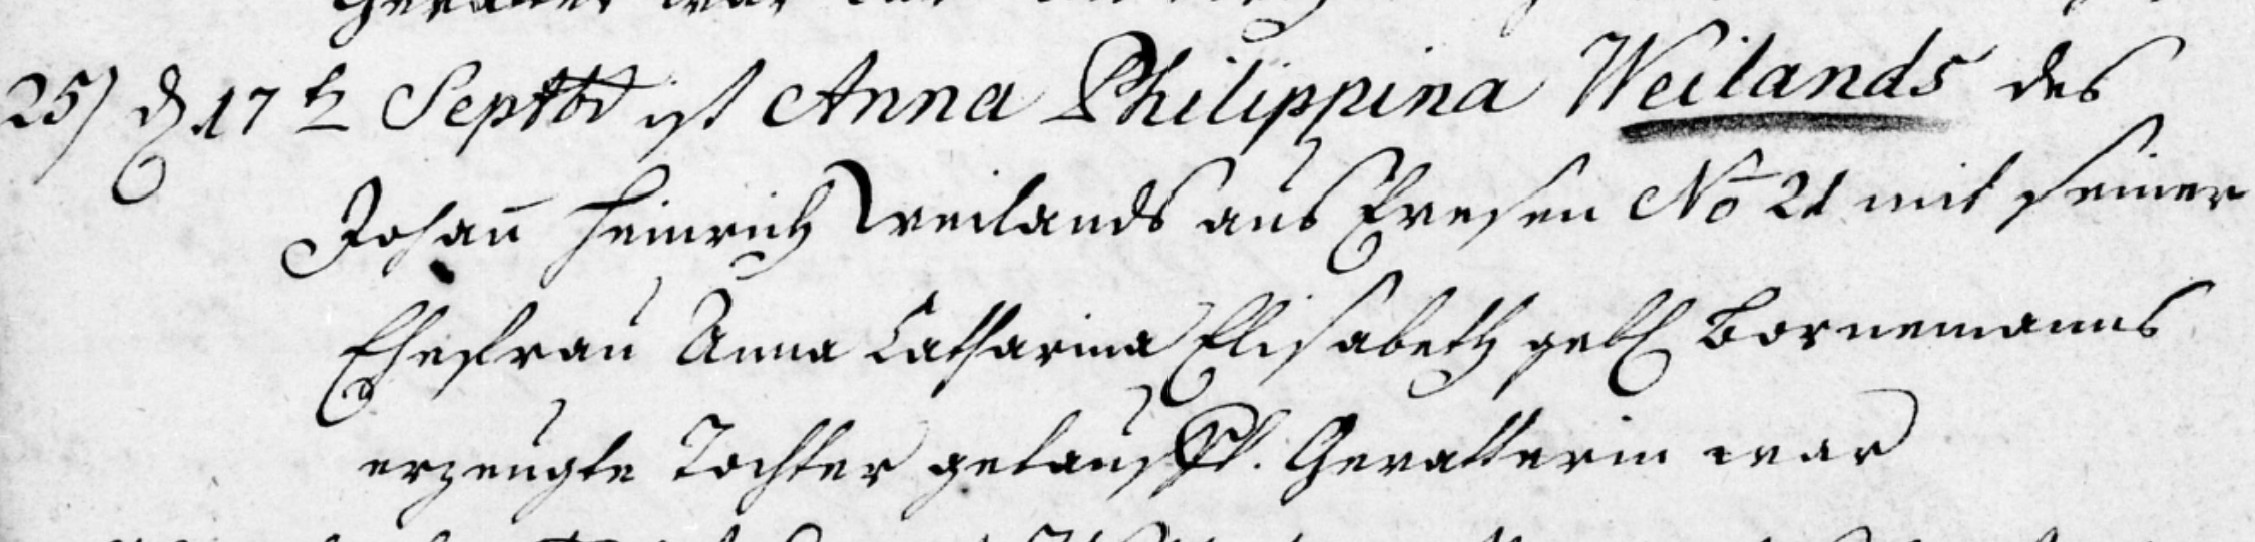 25) d 17t Septbr ist Anna Philippina Weilands des
Johann Heinrich Weilands aus Eresen No 21 mit seiner
Ehefrau Anna Catharina Elisabeth geb. Bornemanns
erzeugte Tochter getauft. Gevatterin war